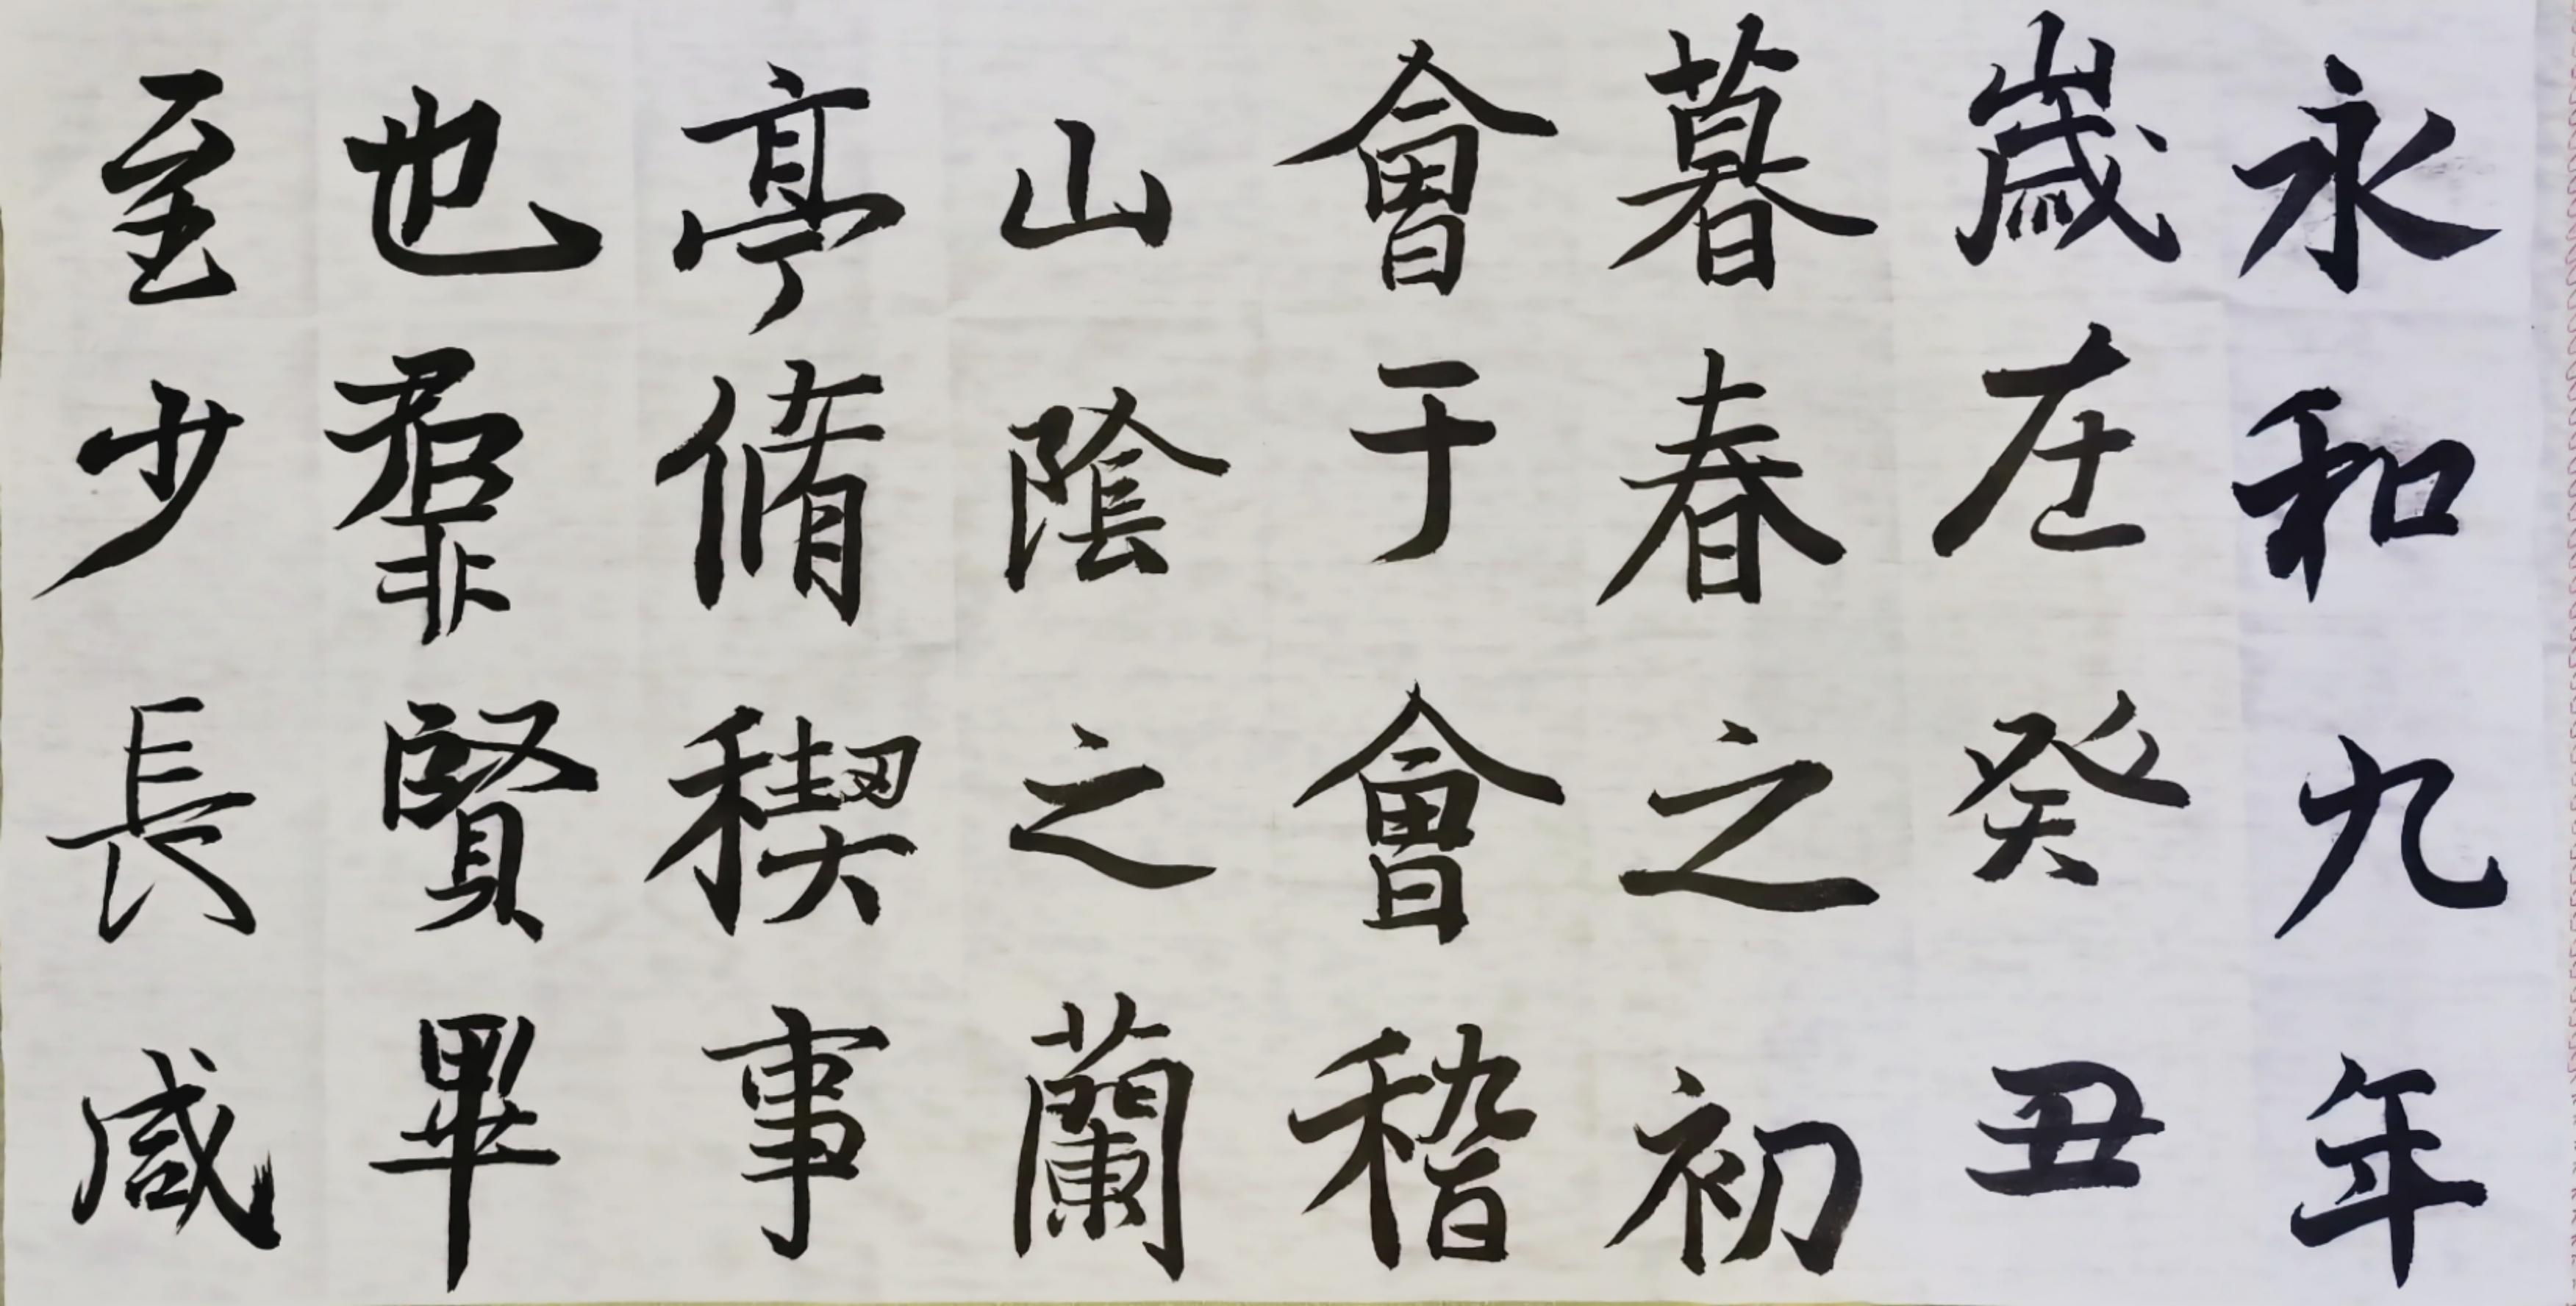 永和九年
歲在癸丑
暮春之初
會于會稽
山陰之蘭
亭脩稧事
也羣賢畢
至少長咸